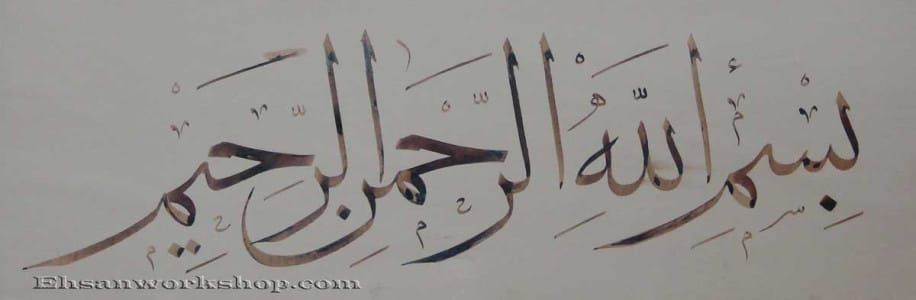 بِسْمِ اللَّهِ الرَّحْمٰنِ الرَّحِيمِ
Ehsanworkshop.com